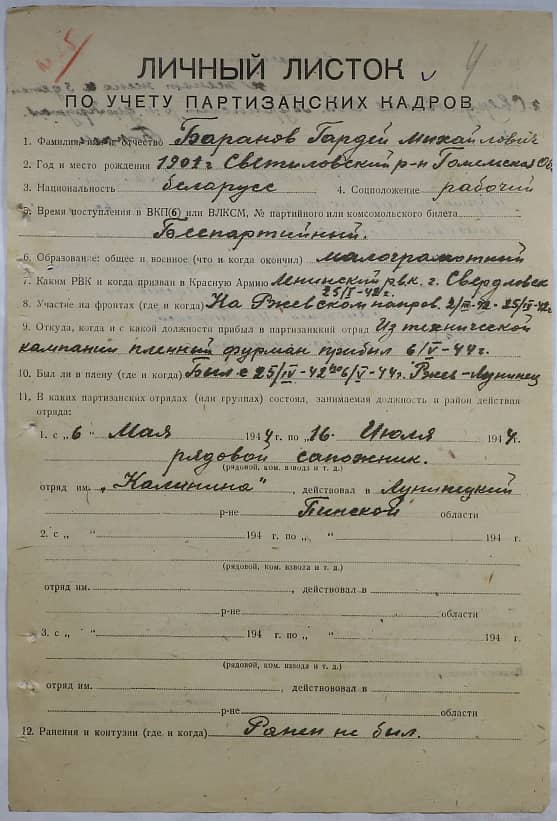 4
ЛИЧНЫЙ ЛИСТОК
ПО УЧЕТУ ПАРТИЗАНСКИХ КАДРОВ
1. Фамилия, имя и отчество Баранов Гардей Михайлович
2. Год и место рождения 1902 г Светиловский р-н Гомельская Об.
3. Национальность беларусс 4. Соцположение рабочий
5. Время поступления в ВКП(б) или ВЛКСМ, № партийного или комсомольского билета
Беспартийный.
6. Образование: общее и военное (что и когда окончил) малограмотный
7. Каким РВК и когда призван в Красную Армию Ленинский рвк. г. Свердловск
25/I-42 г.
8. Участие на фронтах (где и когда) На Ржевском направ. 2/III-42-25/IV-42 г
9. Откуда, когда и с какой должности прибыл в партизанкий отряд Из технической
кампании пленный фурман прибыл 6/V-44 г.
10. Был ли в плену (где и когда) Был с 25/IV-42 по 6/V-44 г. Ржев-Лунинец
11. В каких партизанских отрядах (или группах) состоял, занимаемая должность и район действия
отряда:
1. с „6 " Мая 1944 г. по „16. " Июля 1944 г.
рядовой сапожник.
(рядовой, ком. взвода и т. д.)
отряд им. „Калинина", действовал в Лунинецкий
р-не Пинской области
2. с „ " 194 г. по „ " 194 г.
(рядовой, ком. взвода и т. д.)
отряд им. , действовал в
р-не области
3. с „ " 194 г. по „ " 194 г.
(рядовой, ком. взвода и т. д.)
отряд им. , действововал в
р-не области
12. Ранения и контузии (где и когда) Ранен не был.